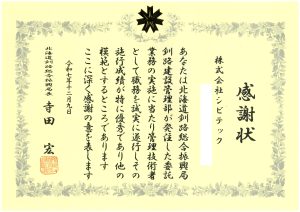 感謝状
株式会社シビテック
あなたは北海道釧路総合振興局
釧路建設管理部が発注した委託
業務の実施に当たり管理技術者
として職務を誠実に遂行しその
施行成績が特に優秀であり他の
模範とするところであります
ここに深く感謝の意を表します
令和七年十二月九日
北海道釧路総合振興局長
寺田 宏